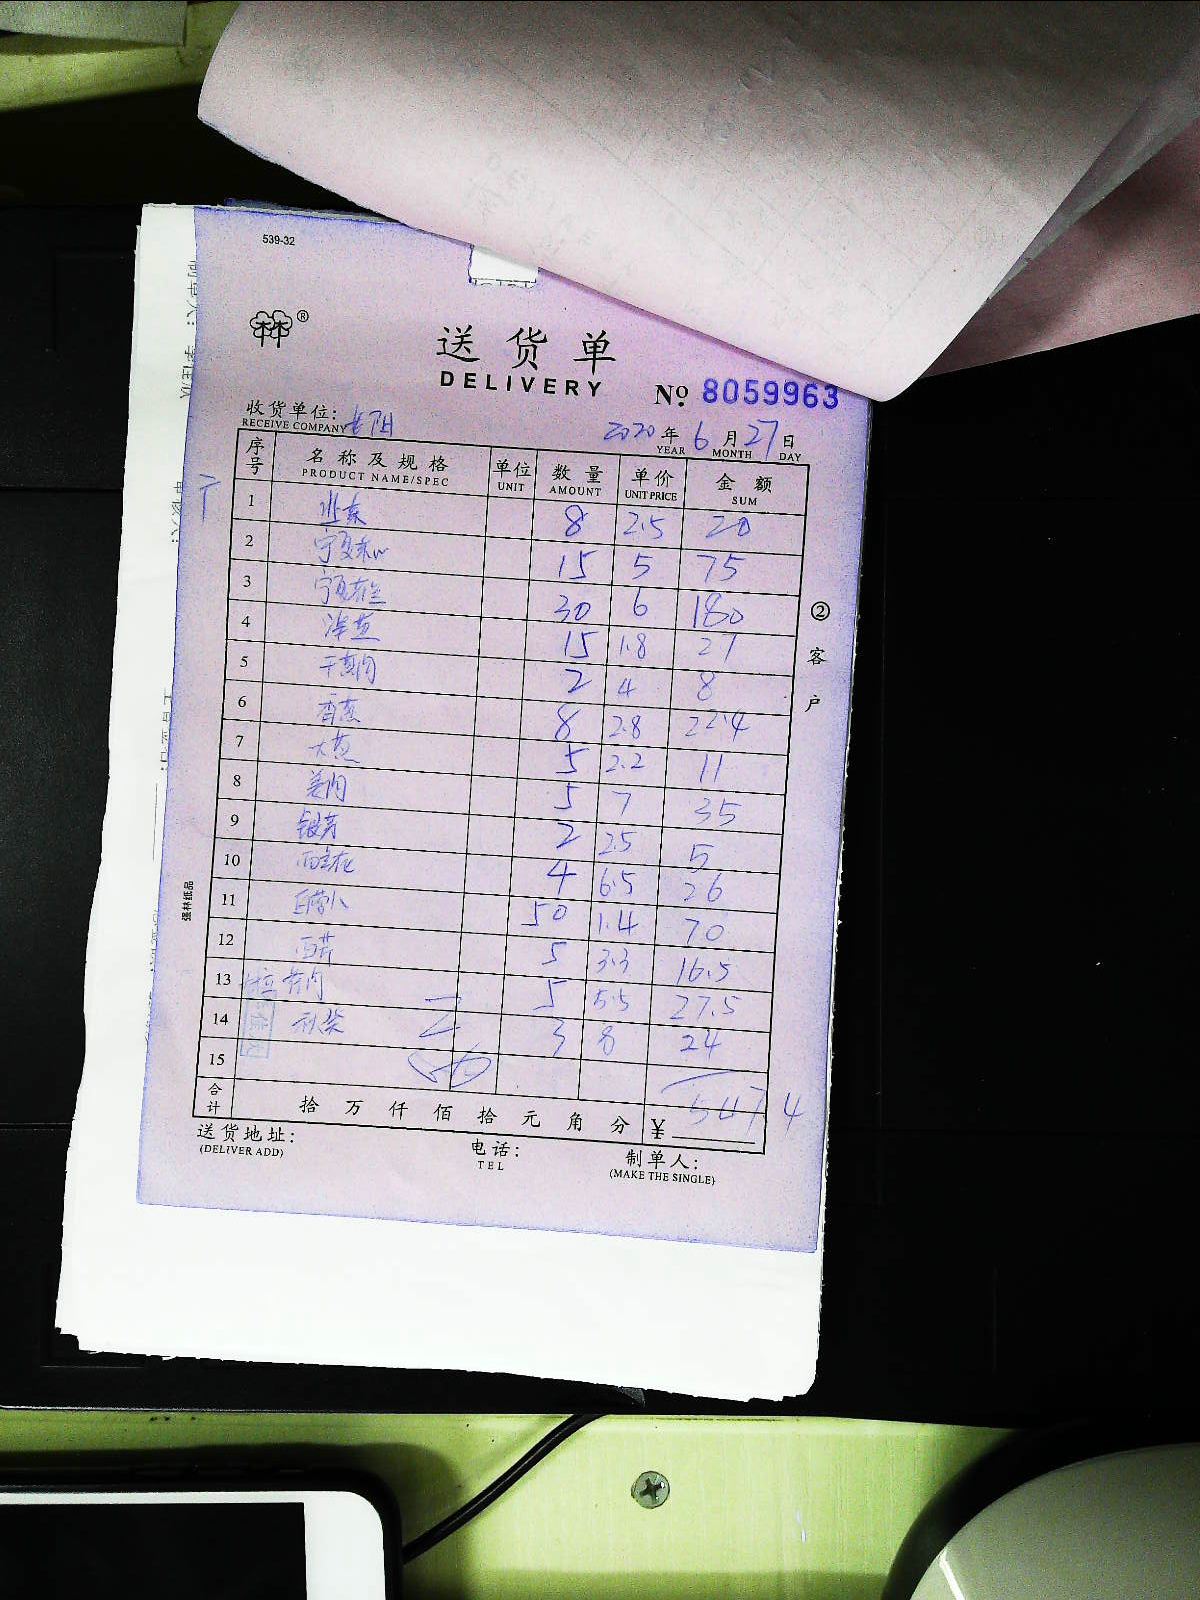 539-32
林®
送货单
DELIVERY
№ 8059963
收货单位:
RECEIVE COMPANY
2020年6月27日
YEAR MONTH DAY
序号 名称及规格 单位 数量 单价 金额
PRODUCT NAME/SPEC UNIT AMOUNT UNIT PRICE SUM
1 8 2.5 20
2 15 5 75
3 30 6 180
4 洋葱 15 1.8 27
5 干葱肉 2 4 8
6 香葱 8 2.8 22.4
7 大葱 5 2.2 11
8 姜肉 5 7 35
9 银芽 2 2.5 5
10 西兰花 4 6.5 26
11 白萝卜 50 1.4 70
12 西芹 5 3.3 16.5
13 5 5.5 27.5
14 3 8 24
15
合计 拾万仟佰拾元角分 ¥ 547.4
送货地址:
(DELIVER ADD)
电话:
TEL
制单人:
(MAKE THE SINGLE)
②客户
强林纸品